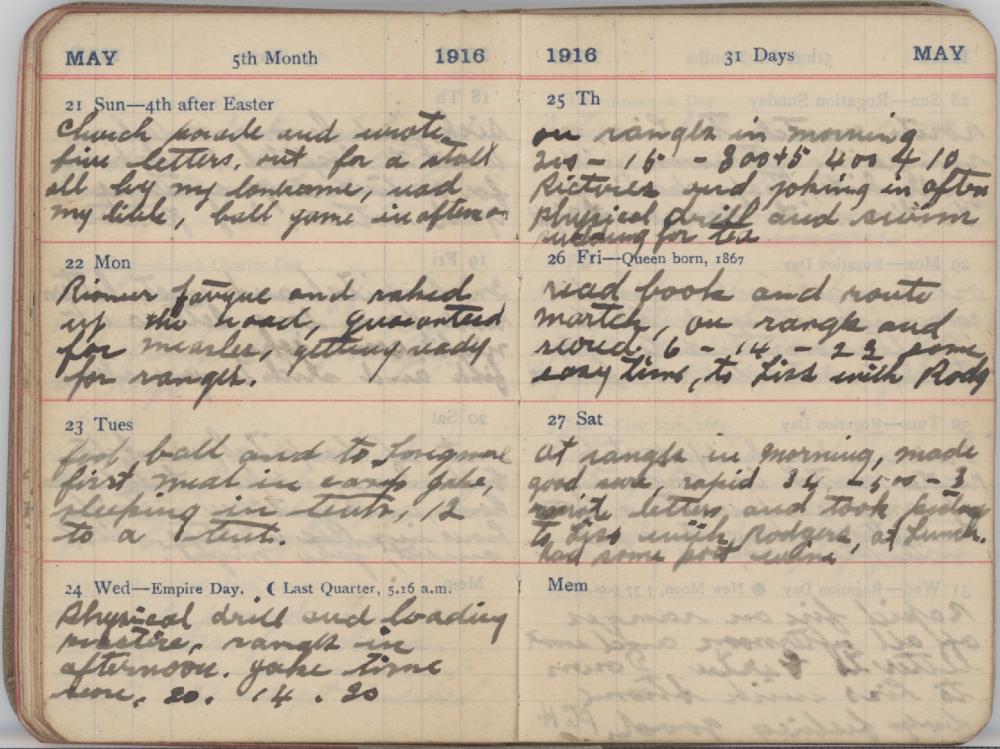 MAY 5th Month 1916
21 Sun—4th after Easter
Church parade and wrote
five letters, out for a stall
all by my lonesome, und
my lile, ball game in afternoon
22 Mon
Pioneer favque and raked
up the road, guaranteed
for measles, getting ready
for ranges.
23 Tues
foot ball and to Longmore
first meal in camp
sleeping in tents, 12
to a tent.
24 Wed—Empire Day. ☾ Last Quarter, 5.16 a.m.
Physical drill and loading
practice, ranges in
afternoon. time
score, 20. 14. 20
1916 31 Days MAY
25 Th
on ranges in morning
200 - 15 - 300+5 400 4 10
Pictures and joking in after
physical drill and swim
for tea
26 Fri—Queen born, 1867
read book and route
martch, on range and
6 - 14 - 22 some
easy time, to Liss with Rodg
27 Sat
at ranges in morning, made
good rapid 34 - 500 - 3
letters and took
to Liss with Rodgers, at Lunch.
had some port wine
Mem